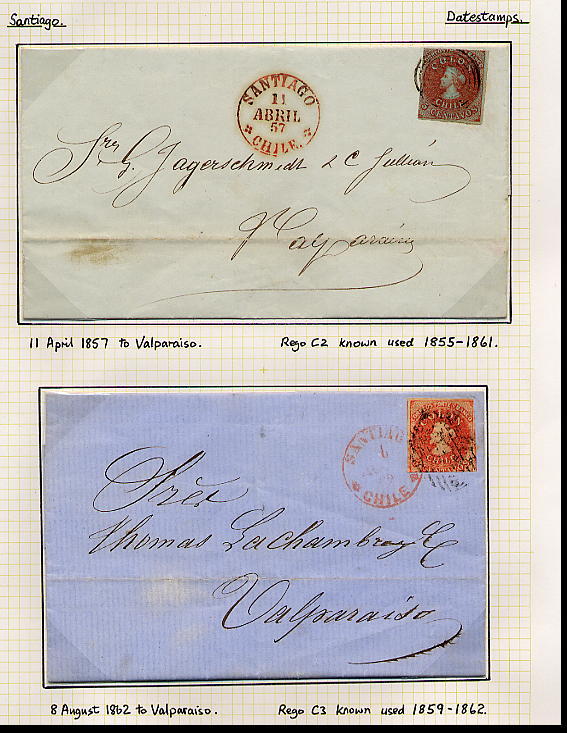 Santiago.
Datestamps.
COLON
CHILE
5 CENTAVOS
SANTIAGO
11
ABRIL
57
CHILE.
Srs G. Jagerschmidt & C Jullian
Valparaiso
11 April 1857 to Valparaiso.
Rego C2 known used 1855-1861.
COLON
SANTIAGO
6
CHILE
Sres
Thomas Lachambre y C
Valparaiso
8 August 1862 to Valparaiso.
Rego C3 known used 1859-1862.